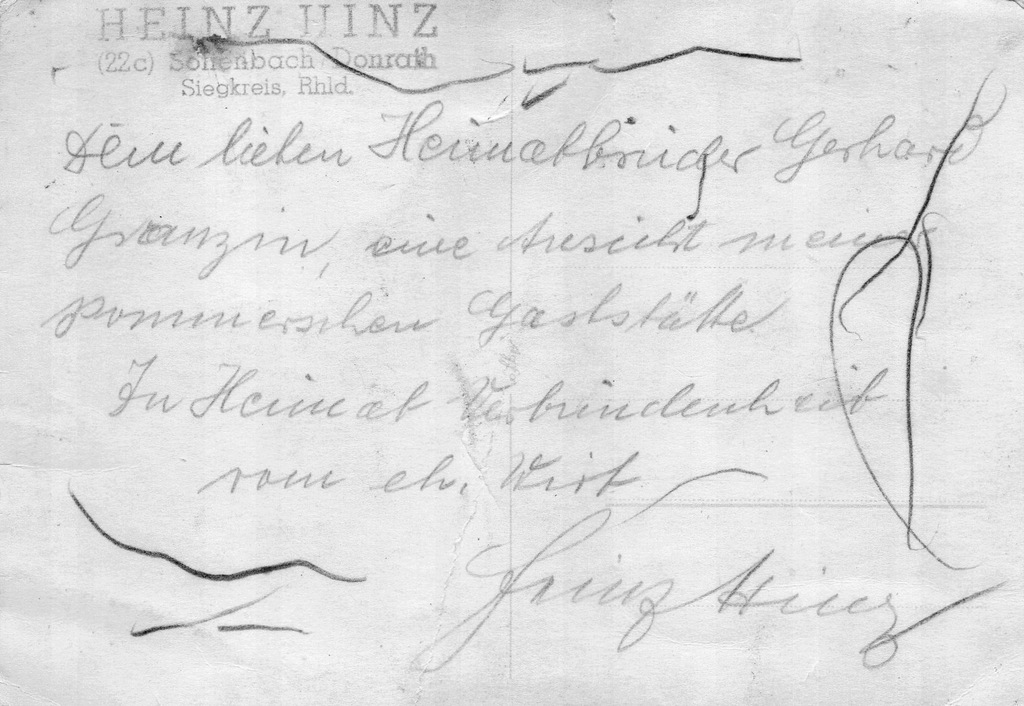 HEINZ HINZ
(22c) Sottenbach Donrath
Siegkreis, Rhld.
Dem lieben Heimatbruder Gerhard
Granzin, eine Ansicht meiner
pommerschen Gaststätte
In Heimat Verbundenheit
vom eh. Wirt
Heinz Hinz